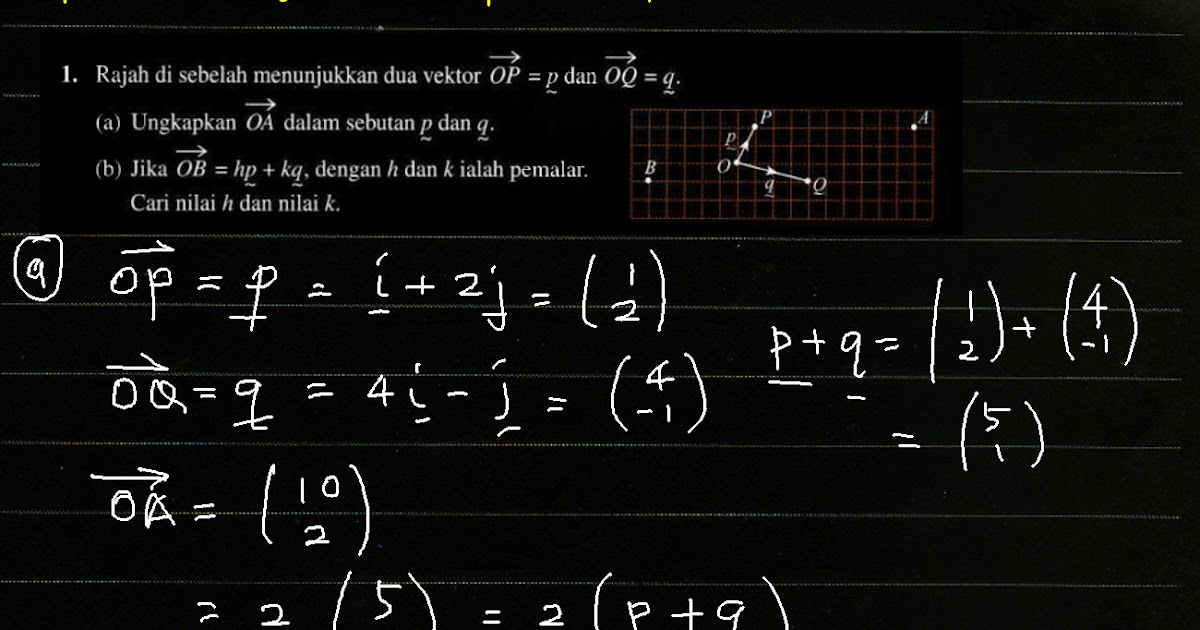 1. Rajah di sebelah menunjukkan dua vektor OP = p dan OQ = q.
(a) Ungkapkan OA dalam sebutan p dan q.
(b) Jika OB = hp + kq, dengan h dan k ialah pemalar.
Cari nilai h dan nilai k.
P
A
p
B
O
q
Q
a OP = p = i + 2j = (1 2)
p + q = (1 2) + (4 -1)
OQ = q = 4i - j = (4 -1)
= (5 1)
OA = (10 2)
= 2 (5 = 2 (p + q)